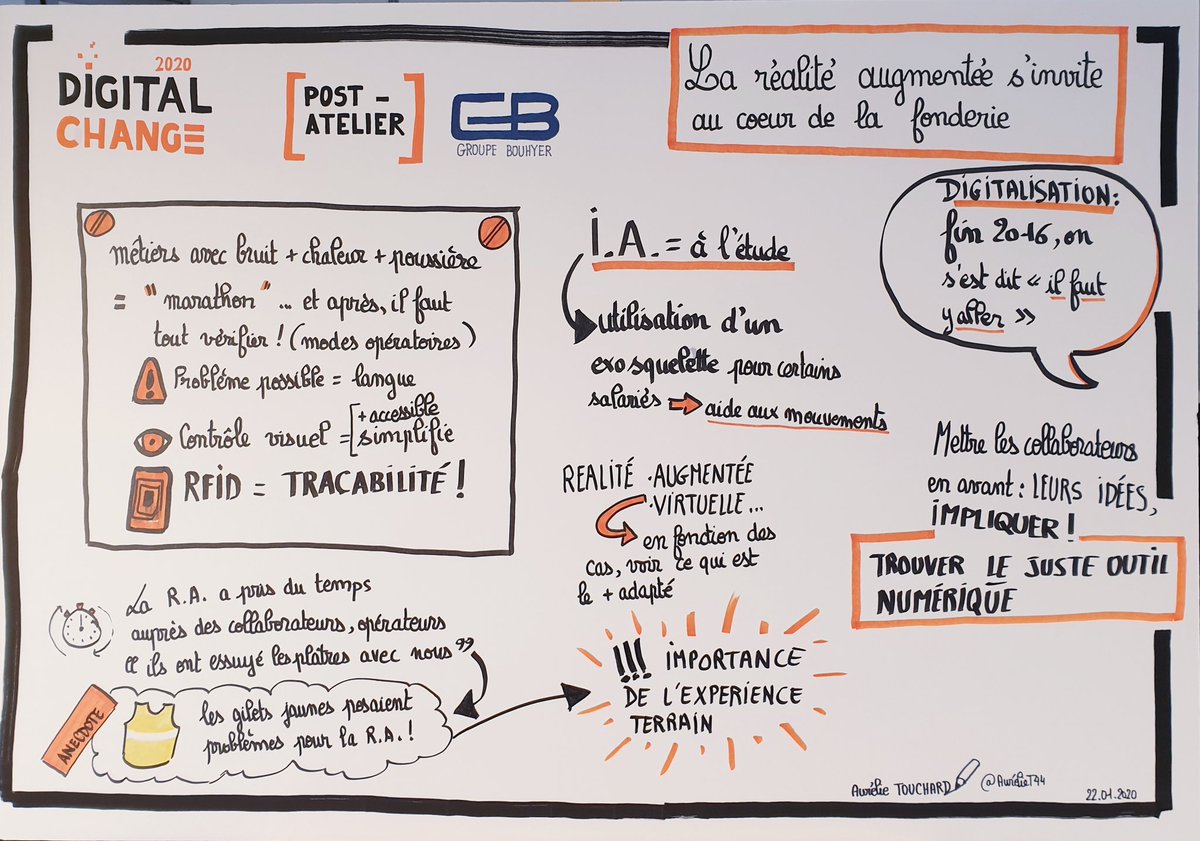 2020
DIGITAL
CHANGE
[POST-
ATELIER]
GB
GROUPE BOUHYER
La réalité augmentée s'invite
au coeur de la fonderie
métiers avec bruit + chaleur + poussière
= "marathon"... et après, il faut
tout vérifier ! (modes opératoires)
Problème possible = langue
Contrôle visuel = [+ accessible
simplifie
RFID = TRACABILITÉ !
I.A. = à l'étude
utilisation d'un
exosquelette pour certains
salariés → aide aux mouvements
DIGITALISATION:
fin 2016, on
s'est dit « il faut
y aller »
REALITÉ · AUGMENTÉE
· VIRTUELLE...
en fonction des
cas, voir ce qui est
le + adapté
Mettre les collaborateurs
en avant : LEURS IDÉES,
IMPLIQUER !
TROUVER LE JUSTE OUTIL
NUMÉRIQUE
La R.A. a pris du temps
auprès des collaborateurs, opérateurs
“ ils ont essuyé les plâtres avec nous ”
ANECDOTE
les gilets jaunes posaient
problèmes pour la R.A. !
!!! IMPORTANCE
DE L'EXPERIENCE
TERRAIN
Aurélie TOUCHARD
@AurélieT44
22.01.2020